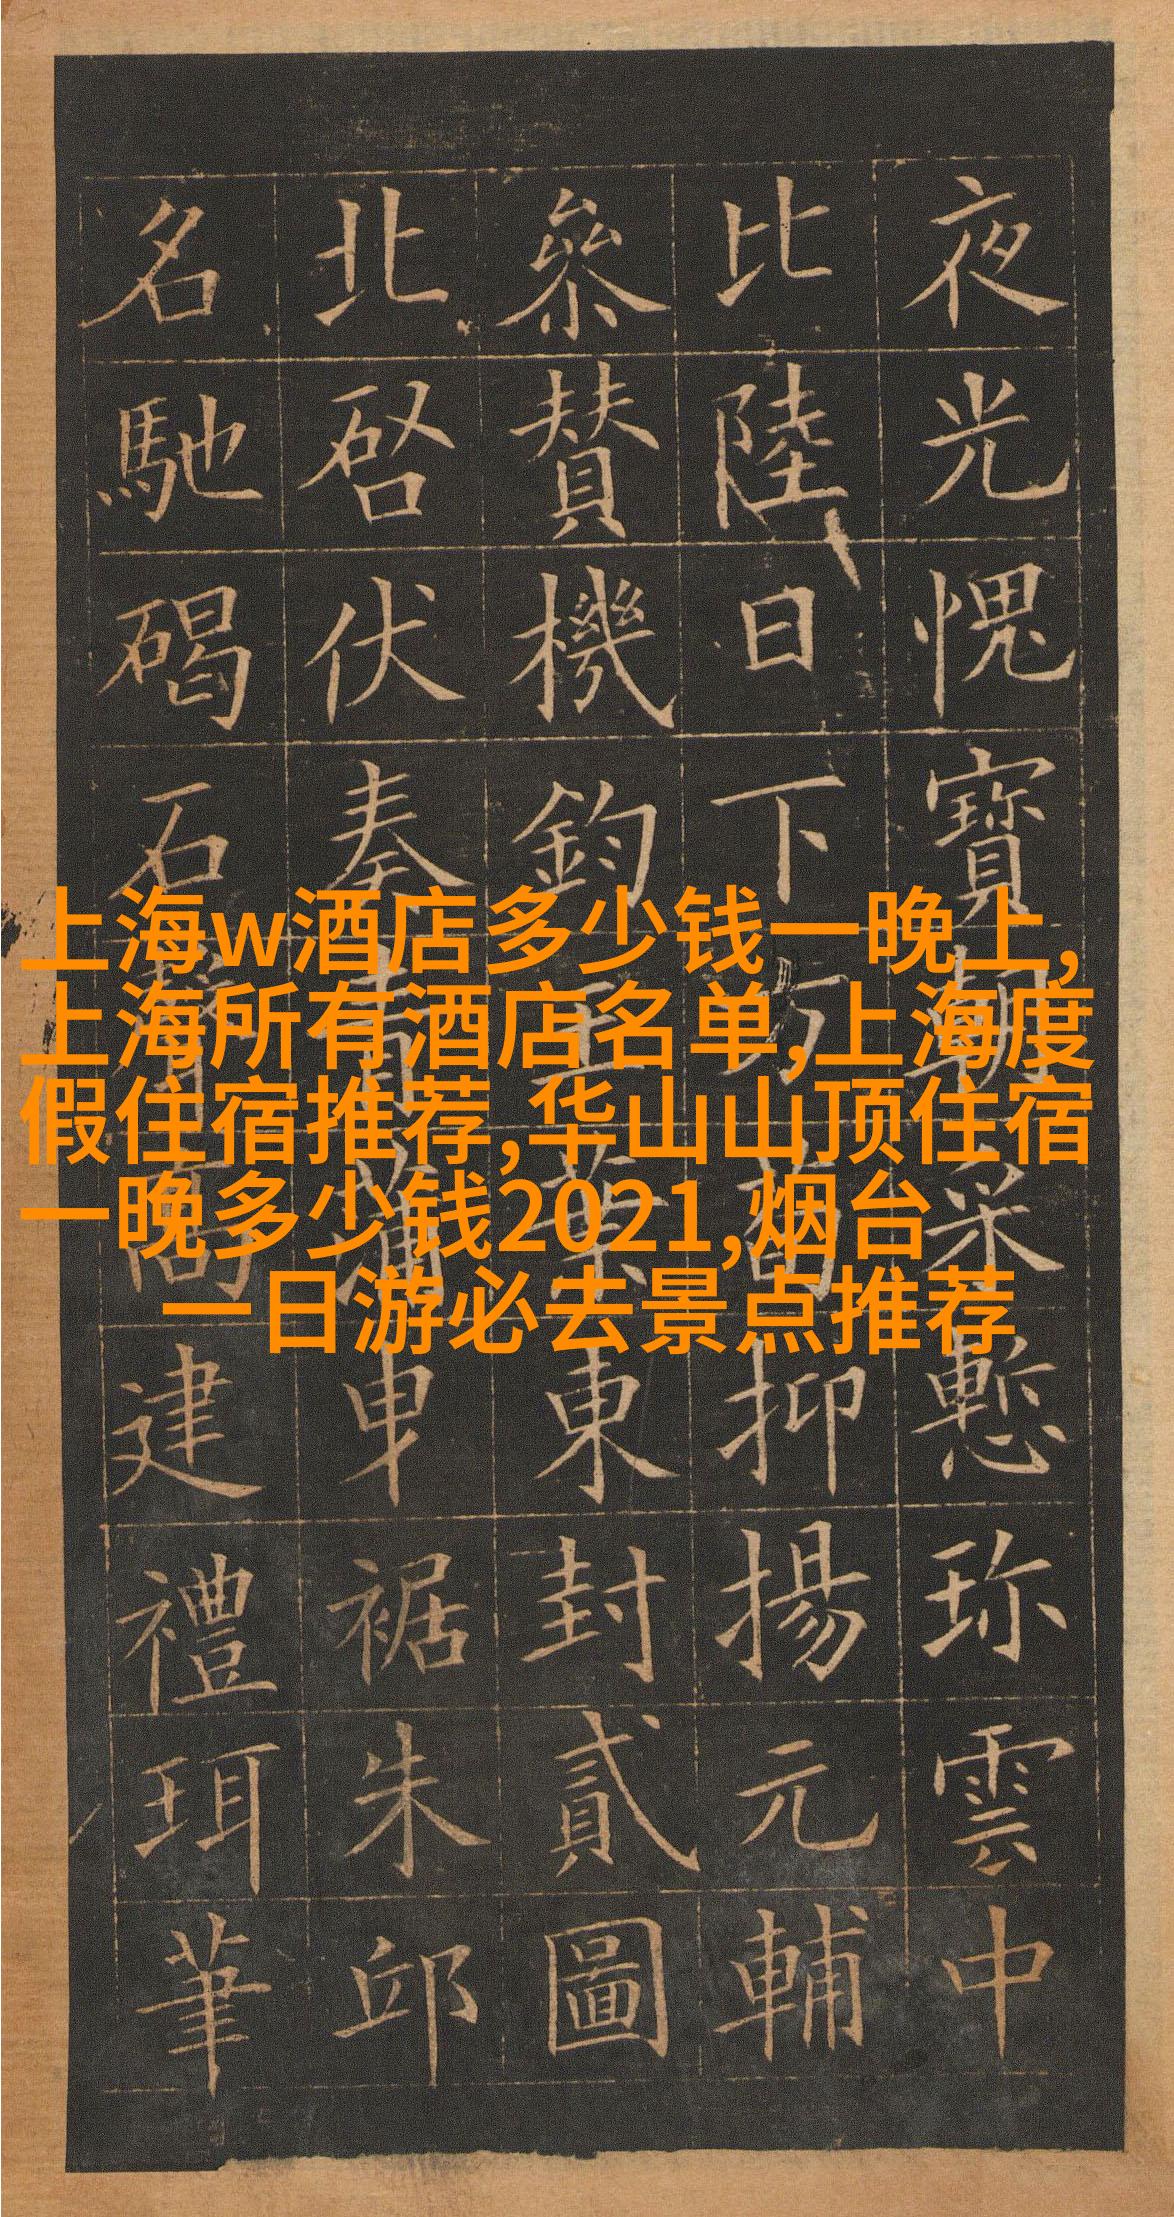 夜光愧寶朝采慙珎雲中
比陸日下方荀抑揚元輔
參賛機鈞葉東封貳圖
北啓伏奏青蒲曳裾朱邸
名馳碣石高建禮珥筆
上海w酒店多少钱一晚上,
上海所有酒店名单,上海度
假住宿推荐,华山山顶住宿
一晚多少钱2021,烟台
一日游必去景点推荐